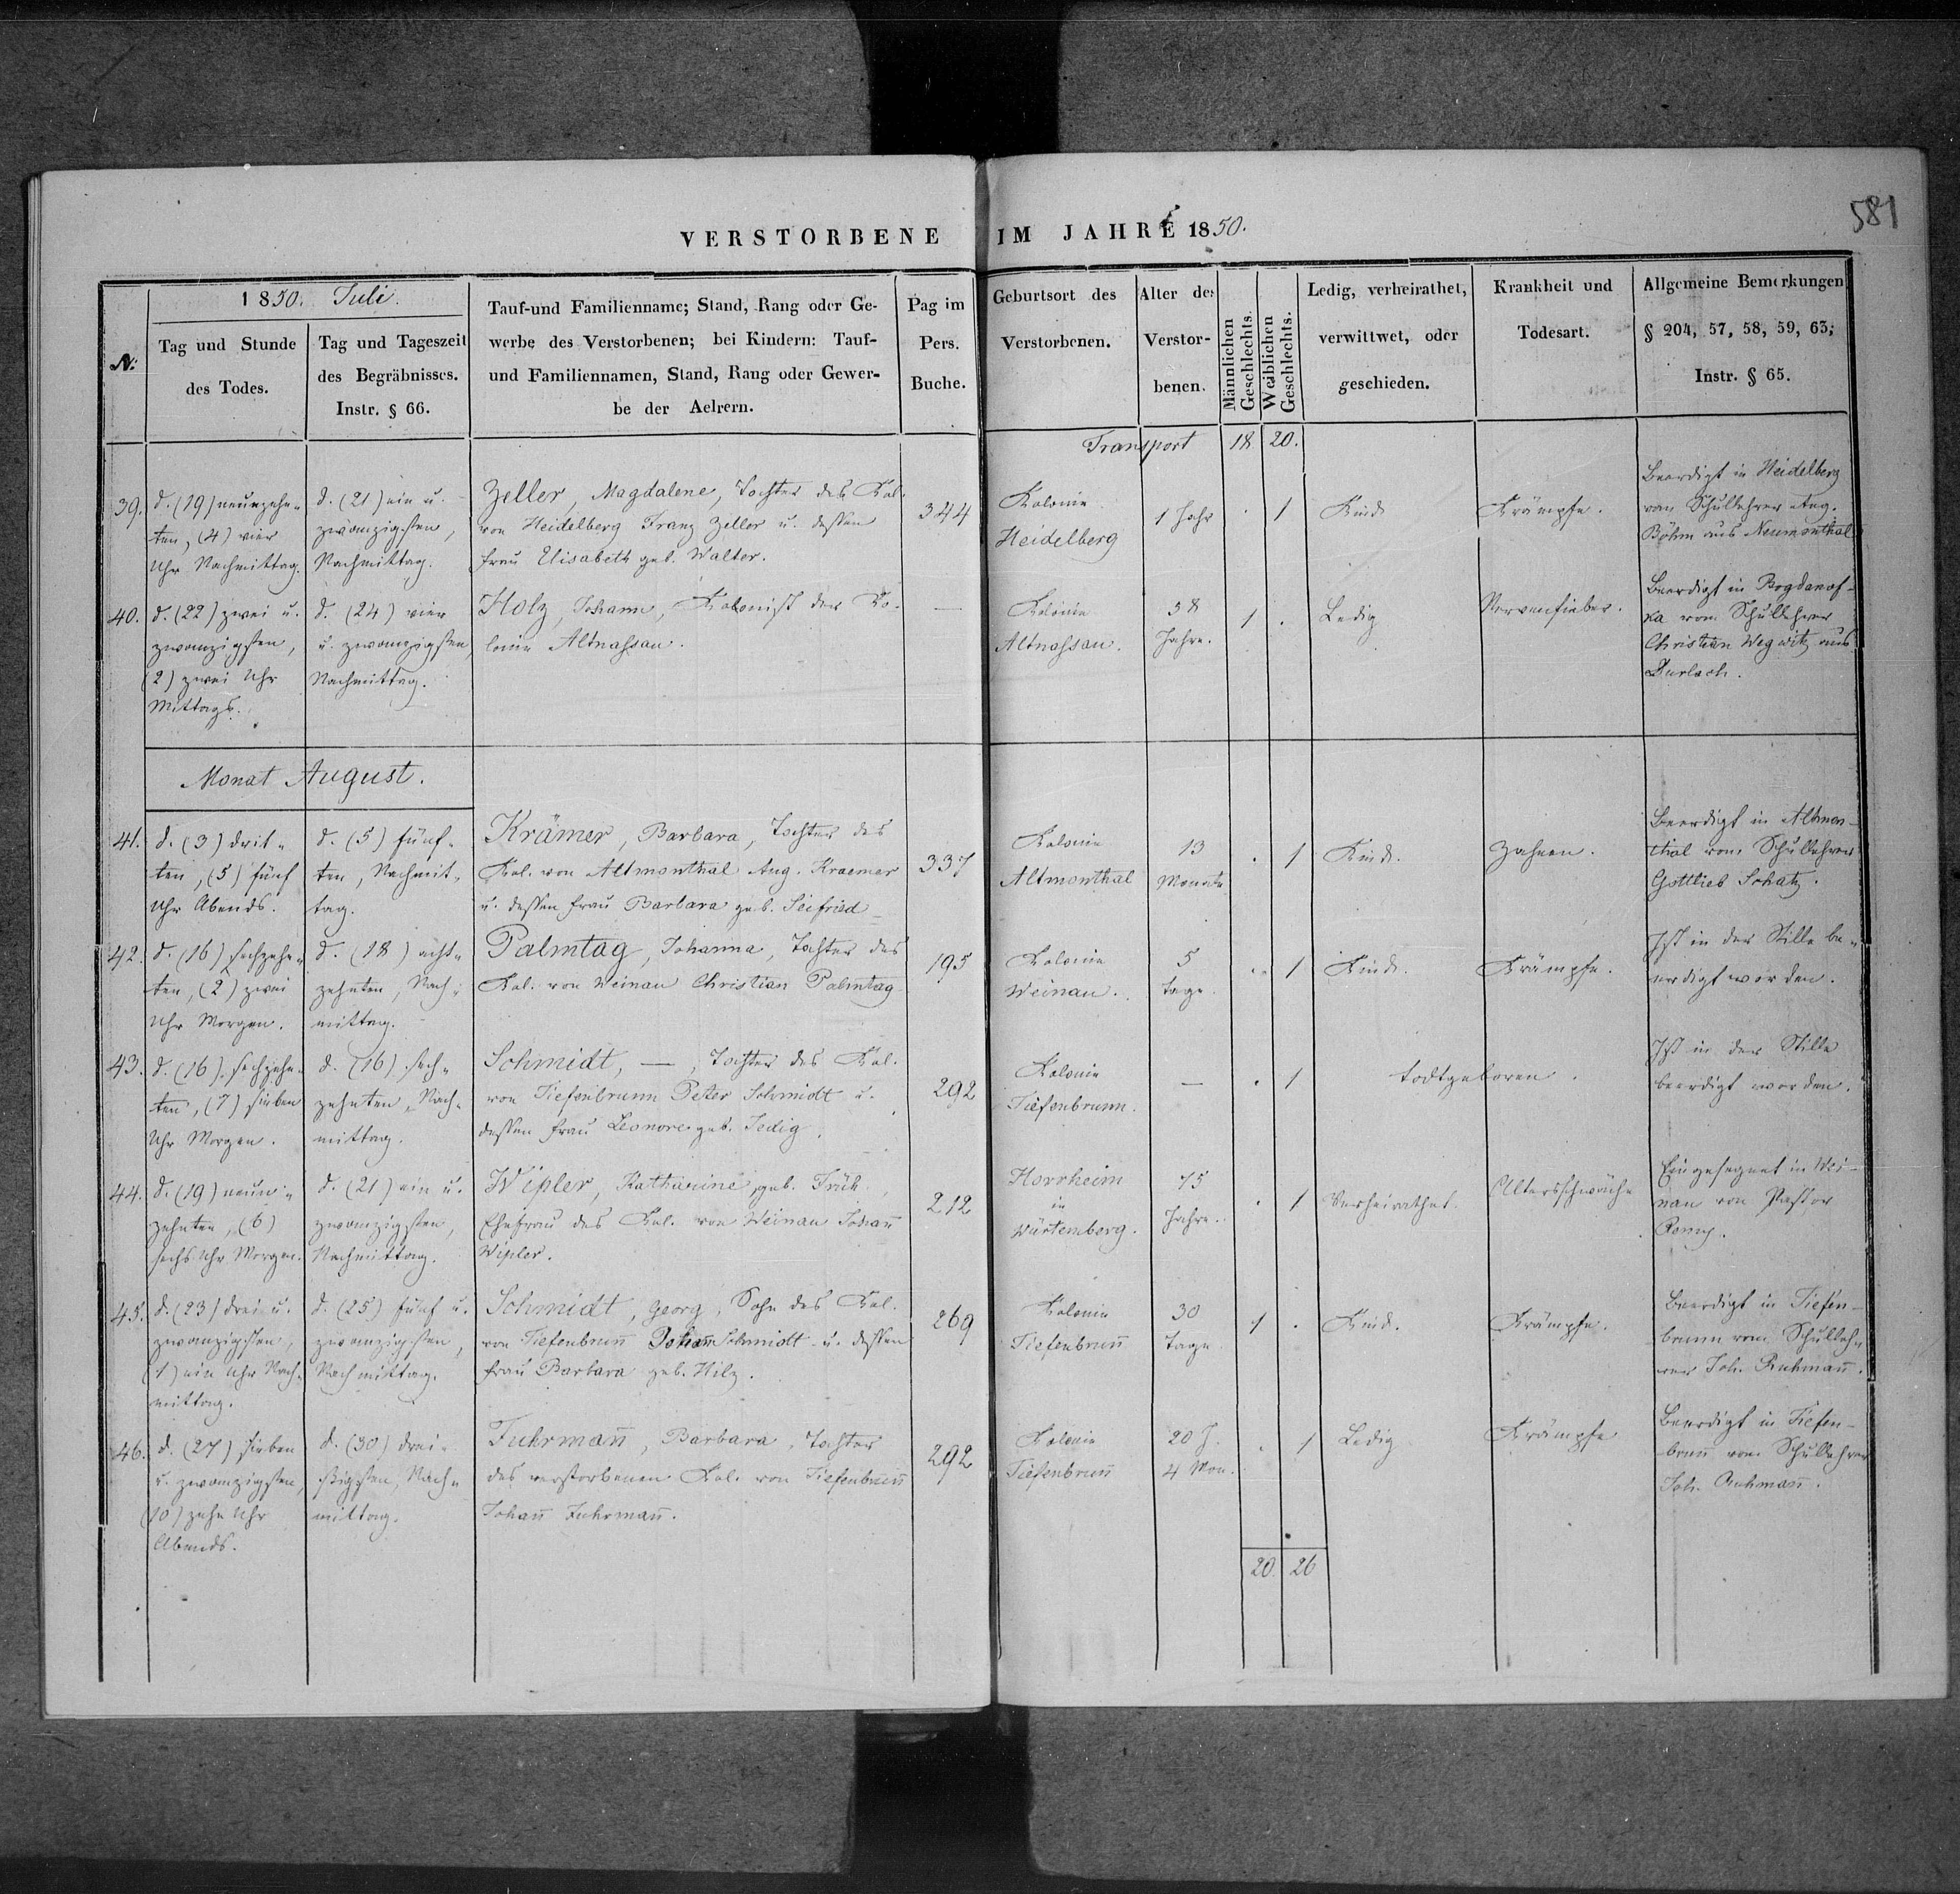 581
VERSTORBENE IM JAHRE 1850.
1850. Juli.
N:
Tag und Stunde
des Todes.
Tag und Tageszeit
des Begräbnisses.
Instr. § 66.
Tauf-und Familienname; Stand, Rang oder Ge-
werbe des Verstorbenen; bei Kindern: Tauf-
und Familiennamen, Stand, Rang oder Gewer-
be der Aelrern.
Pag im
Pers.
Buche.
Geburtsort des
Verstorbenen.
Alter des
Verstor-
benen.
Männlichen
Geschlechts.
Weiblichen
Geschlechts.
Ledig, verheirathet,
verwittwet, oder
geschieden.
Krankheit und
Todesart.
Allgemeine Bemerkungen
§ 204, 57, 58, 59, 63;
Instr. § 65.
Transport 18 20.
39.
d. (19) neunzehn-
ten, (4) vier
Uhr Nachmittag.
d. (21) ein u.
zwanzigsten,
Nachmittag.
Zeller, Magdalene, Tochter des Kol.
von Heidelberg Franz Zeller u. dessen
Frau Elisabeth geb. Walter.
344
Kolonie
Heidelberg
1 Jahr
. 1
Kind
Krämpfe.
Beerdigt in Heidelberg
vom Schullehrer Aug.
Böhm aus Neumonthal
40.
d. (22) zwei u.
zwanzigsten,
(2) zwei Uhr
Mittags.
d. (24) vier
u. zwanzigsten,
Nachmittag.
Holz, Johann, Kolonist der Ko-
lonie Altnassau.
—
Kolonie
Altnassau.
38
Jahre.
1 .
Ledig
Nervenfieber.
Beerdigt in Bogdanof-
ka vom Schullehrer
Christian Wegwitz aus
Durlach.
Monat August.
41.
d. (3) drit-
ten, (5) fünf
Uhr Abends.
d. (5) fünf-
ten, Nachmit-
tag.
Krämer, Barbara, Tochter des
Kol. von Altmonthal Aug. Kraemer
u. dessen Frau Barbara geb. Seifried
337
Kolonie
Altmonthal
13
Monate
. 1
Kind.
Zahnen.
Beerdigt in Altmon-
thal vom Schullehrer
Gottlieb Schatz.
42.
d. (16) sechzehn-
ten, (2) zwei
Uhr Morgen.
d. (18) acht-
zehnten, Nach-
mittag.
Palmtag, Johanna, Tochter des
Kol. von Weinau Christian Palmtag
195
Kolonie
Weinau.
5
Tage.
. 1
Kind.
Krämpfe.
Ist in der Stille be-
erdigt worden.
43.
d. (16) sechzehn-
ten, (7) sieben
Uhr Morgen.
d. (16) sech-
zehnten, Nach-
mittag.
Schmidt, —, Tochter des Kol.
von Tiefenbrunn Peter Schmidt u.
dessen Frau Leonore geb. Jedig.
292
Kolonie
Tiefenbrunn.
—
. 1
todtgeboren.
Ist in der Stille
beerdigt worden.
44.
d. (19) neun-
zehnten, (6)
sechs Uhr Morgen.
d. (21) ein u.
zwanzigsten,
Nachmittag.
Wipler, Katharine, geb. Früh.,
Ehefrau des Kol. von Weinau Johañ
Wipler.
212
Horrheim
in
Würtemberg.
75
Jahre.
. 1
Verheirathet.
Altersschwäche
Eingesegnet in Wei-
nau von Pastor
45.
d. (23) drei u.
zwanzigsten,
(1) ein Uhr Nach-
mittag.
d. (25) fünf u.
zwanzigsten,
Nachmittag.
Schmidt, Georg, Sohn des Kol.
von Tiefenbruñ Johann Schmidt u. dessen
Frau Barbara geb. Hilz.
269
Kolonie
Tiefenbruñ
30
Tage
1 .
Kind.
Krämpfe.
Beerdigt in Tiefen-
brunn vom Schulleh-
rer Joh. Ruhmañ.
46.
d. (27) sieben
u. zwanzigsten,
(10) zehn Uhr
Abends.
d. (30) drei-
ßigsten, Nach-
mittag.
Fuhrmañ, Barbara, Tochter
des verstorbenen Kol. von Tiefenbruñ
Johañ Fuhrmañ.
292
Kolonie
Tiefenbruñ
20 J.
4 Mon.
. 1
Ledig
Krämpfe
Beerdigt in Tiefen-
bruñ vom Schullehrer
Joh. Ruhmañ.
20. 26